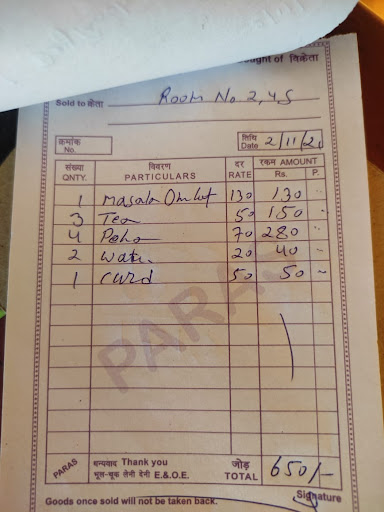 ought of विक्रेता
Sold to क्रेता Room No 2,4,5
क्रमांक
No.
तिथि
Date 2/11/21
संख्या विवरण दर रकम AMOUNT
QNTY. PARTICULARS RATE Rs. P.
1 masala Omlet 130 130
3 Tea 50 150
4 Poha 70 280
2 Water 20 40
1 curd 50 50
PARAS
PARAS धन्यवाद Thank you जोड़
भूल-चूक लेनी देनी E.&O.E. TOTAL 650/-
Goods once sold will not be taken back. Signature